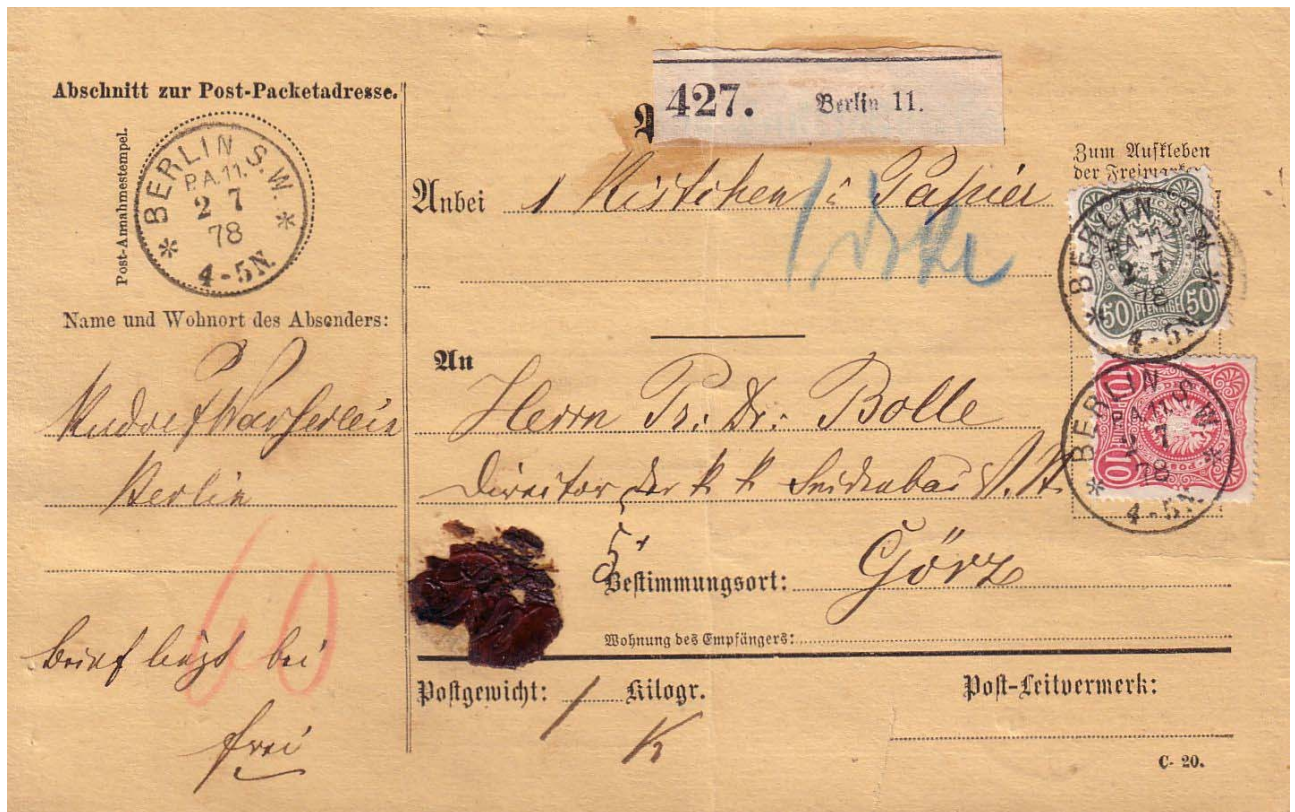 Abschnitt zur Post-Packetadresse.
Post-Annahmestempel.
BERLIN S.W.
P.A.11.
2 7
78
4-5N.
Name und Wohnort des Absenders:
Berlin
60
Brief liegt bei
frei
427. Berlin 11.
Anbei 1 Kistchen : Papier
Zum Aufkleben
der Freimarke
50 PFENNIGE 50
BERLIN S.W.
P.A.11.
2 7
78
4-5N.
10 10
BERLIN S.W.
P.A.11.
2 7
78
4-5N.
An Herrn Pr: Dr: Bolle
Director der k k Seidenbau V. St.
Bestimmungsort: Görz
Wohnung des Empfängers:
Postgewicht: 1 Kilogr.
K
Post-Leitvermerk:
C. 20.